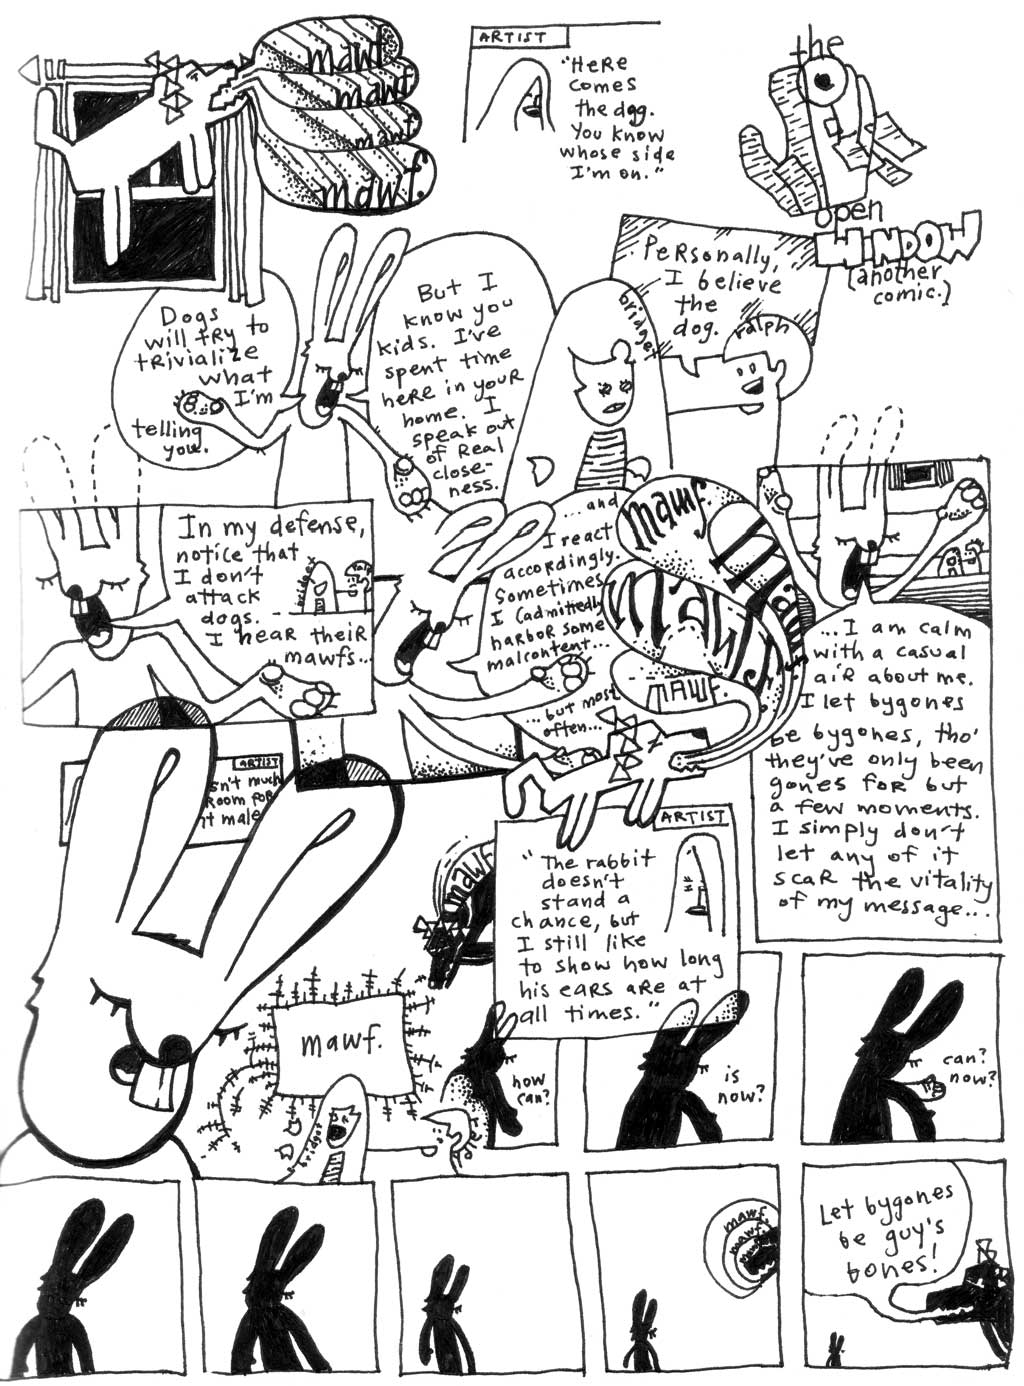 mawf.
mawf.
mawf.
mawf.
ARTIST
"HeRe
comes
the dog.
You know
whose side
I'm on."
the
open
WINDOW
(another
comic.)
Dogs
will tRy to
tRivialize
what
I'm
telling
you.
But I
know you
kids. I've
spent time
heRe in youR
home. I
speak out
of Real
close-
ness.
bridget
PeRsonally,
I believe
the
dog.
ralph
In my defense,
notice that
I don't
attack
dogs.
I heaR theiR
mawfs...
bridget
Ralph
...and
I react
accordingly.
Sometimes
I (admittedly)
haRboR some
malcontent...
...but most
often...
mawf.
mawf.
mawf.
mawf.
...I am calm
with a casual
aiR about me.
I let bygones
be bygones, tho'
they've only been
gones foR but
a few moments.
I simply don't
let any of it
scaR the vitality
of my message...
ARTIST
sn't much
Room foR
male
ARTIST
"The rabbit
doesn't
stand a
chance, but
I still like
to show how long
his eaRs aRe at
all times."
mawf.
mawf.
bridget
ralph
how
can?
is
now?
can?
now?
mawf.
mawf.
mawf.
Let bygones
be guy's
bones!